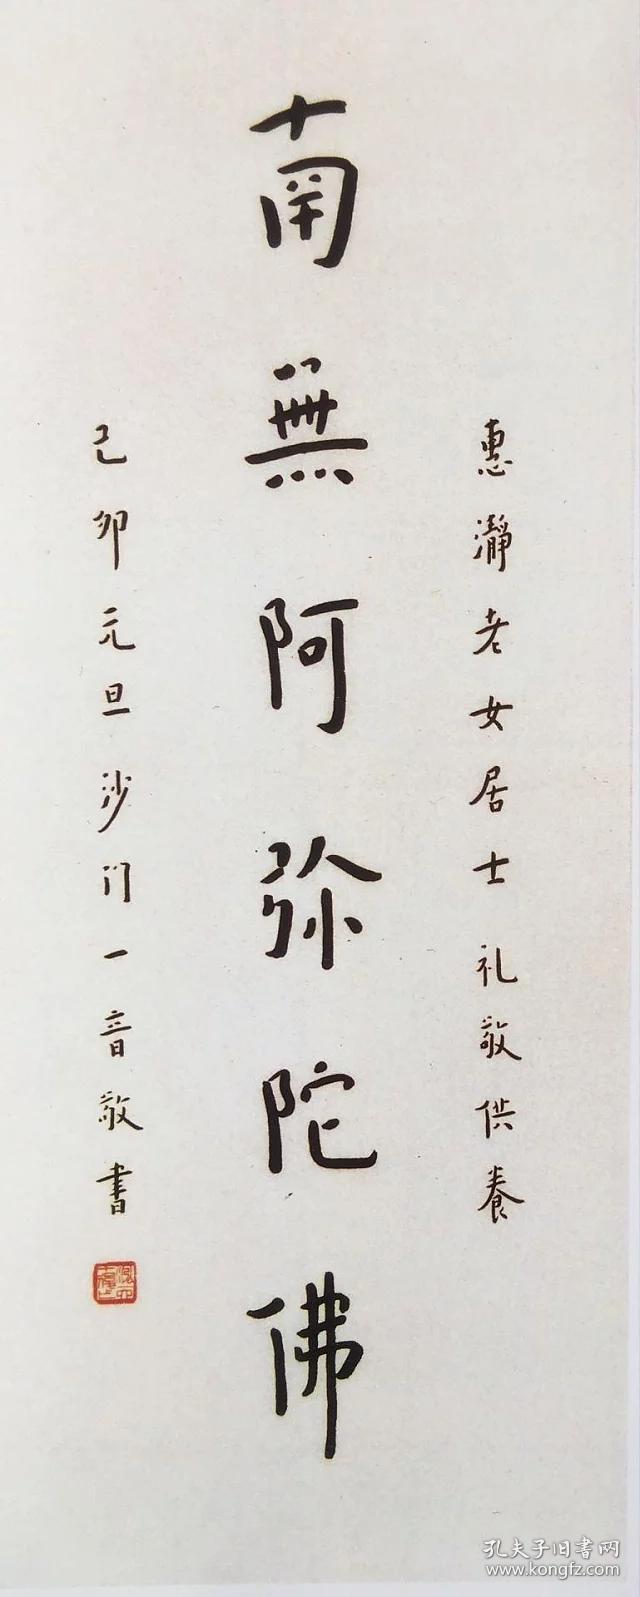 惠瀞老女居士礼敬供養
南無阿弥陀佛
己卯元旦沙门一音敬書
孔夫子旧書网
www.kongfz.com